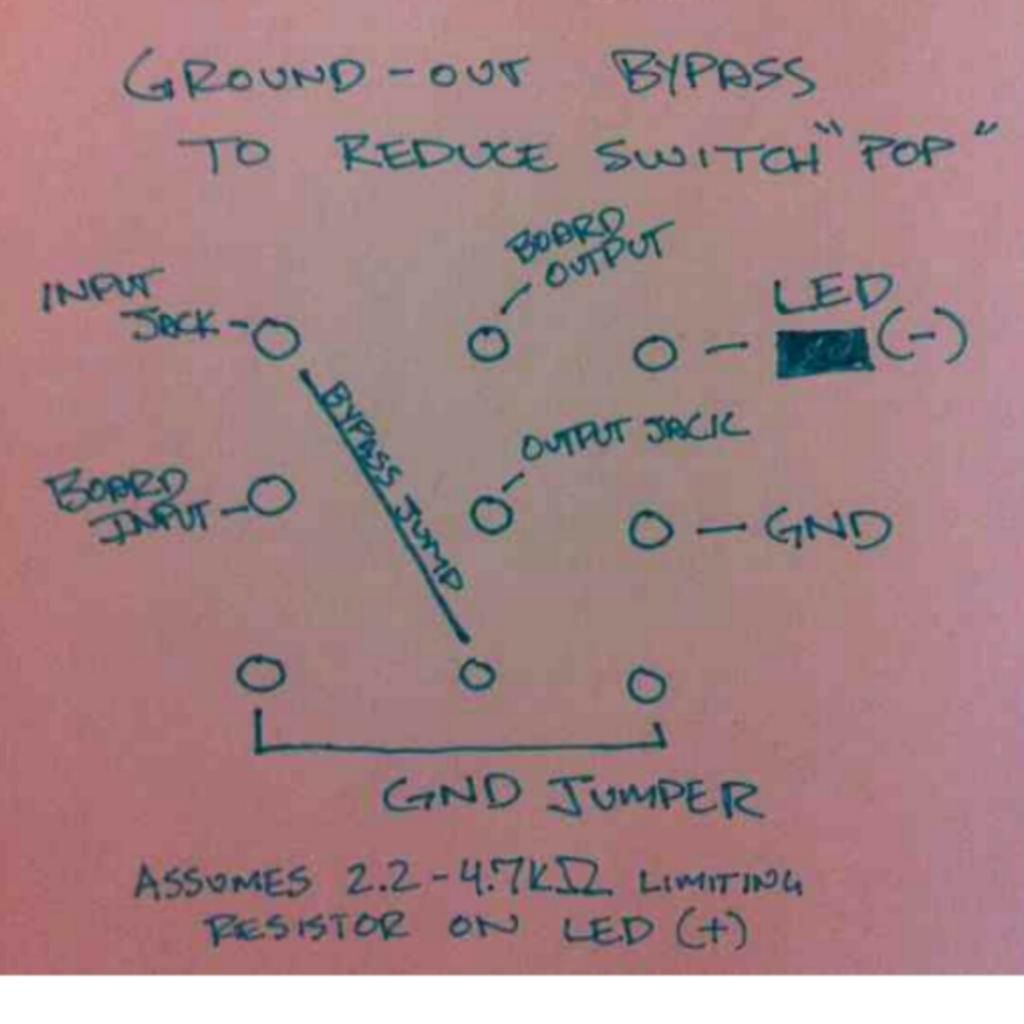 GROUND-OUT BYPASS
TO REDUCE SWITCH "POP"
BOARD
OUTPUT
INPUT
JACK
LED
(-)
BYPASS JUMP
OUTPUT JACK
BOARD
INPUT
GND
GND JUMPER
ASSUMES 2.2-4.7KΩ LIMITING
RESISTOR ON LED (+)